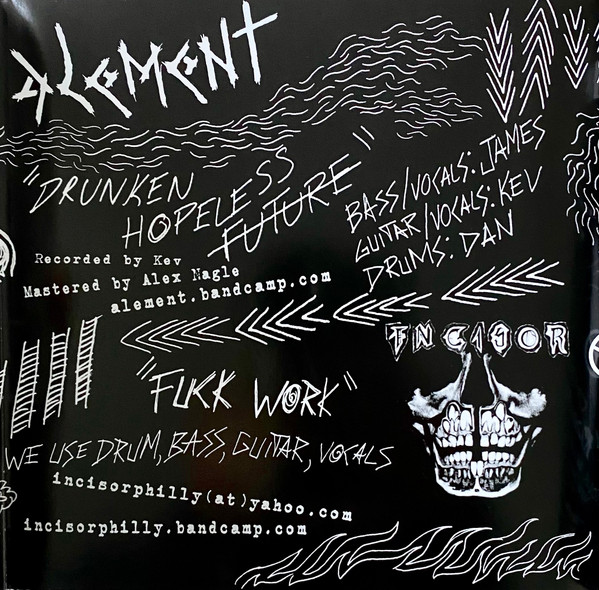 ALEMENT
"DRUNKEN
HOPELESS
FUTURE"
BASS/VOCALS: JAMES
GUITAR/VOCALS: KEV
DRUMS: DAN
Recorded by Kev
Mastered by Alex Nagle
alement.bandcamp.com
INCISOR
"FUCK WORK"
WE USE DRUM, BASS, GUITAR, VOCALS
incisorphilly(at)yahoo.com
incisorphilly.bandcamp.com